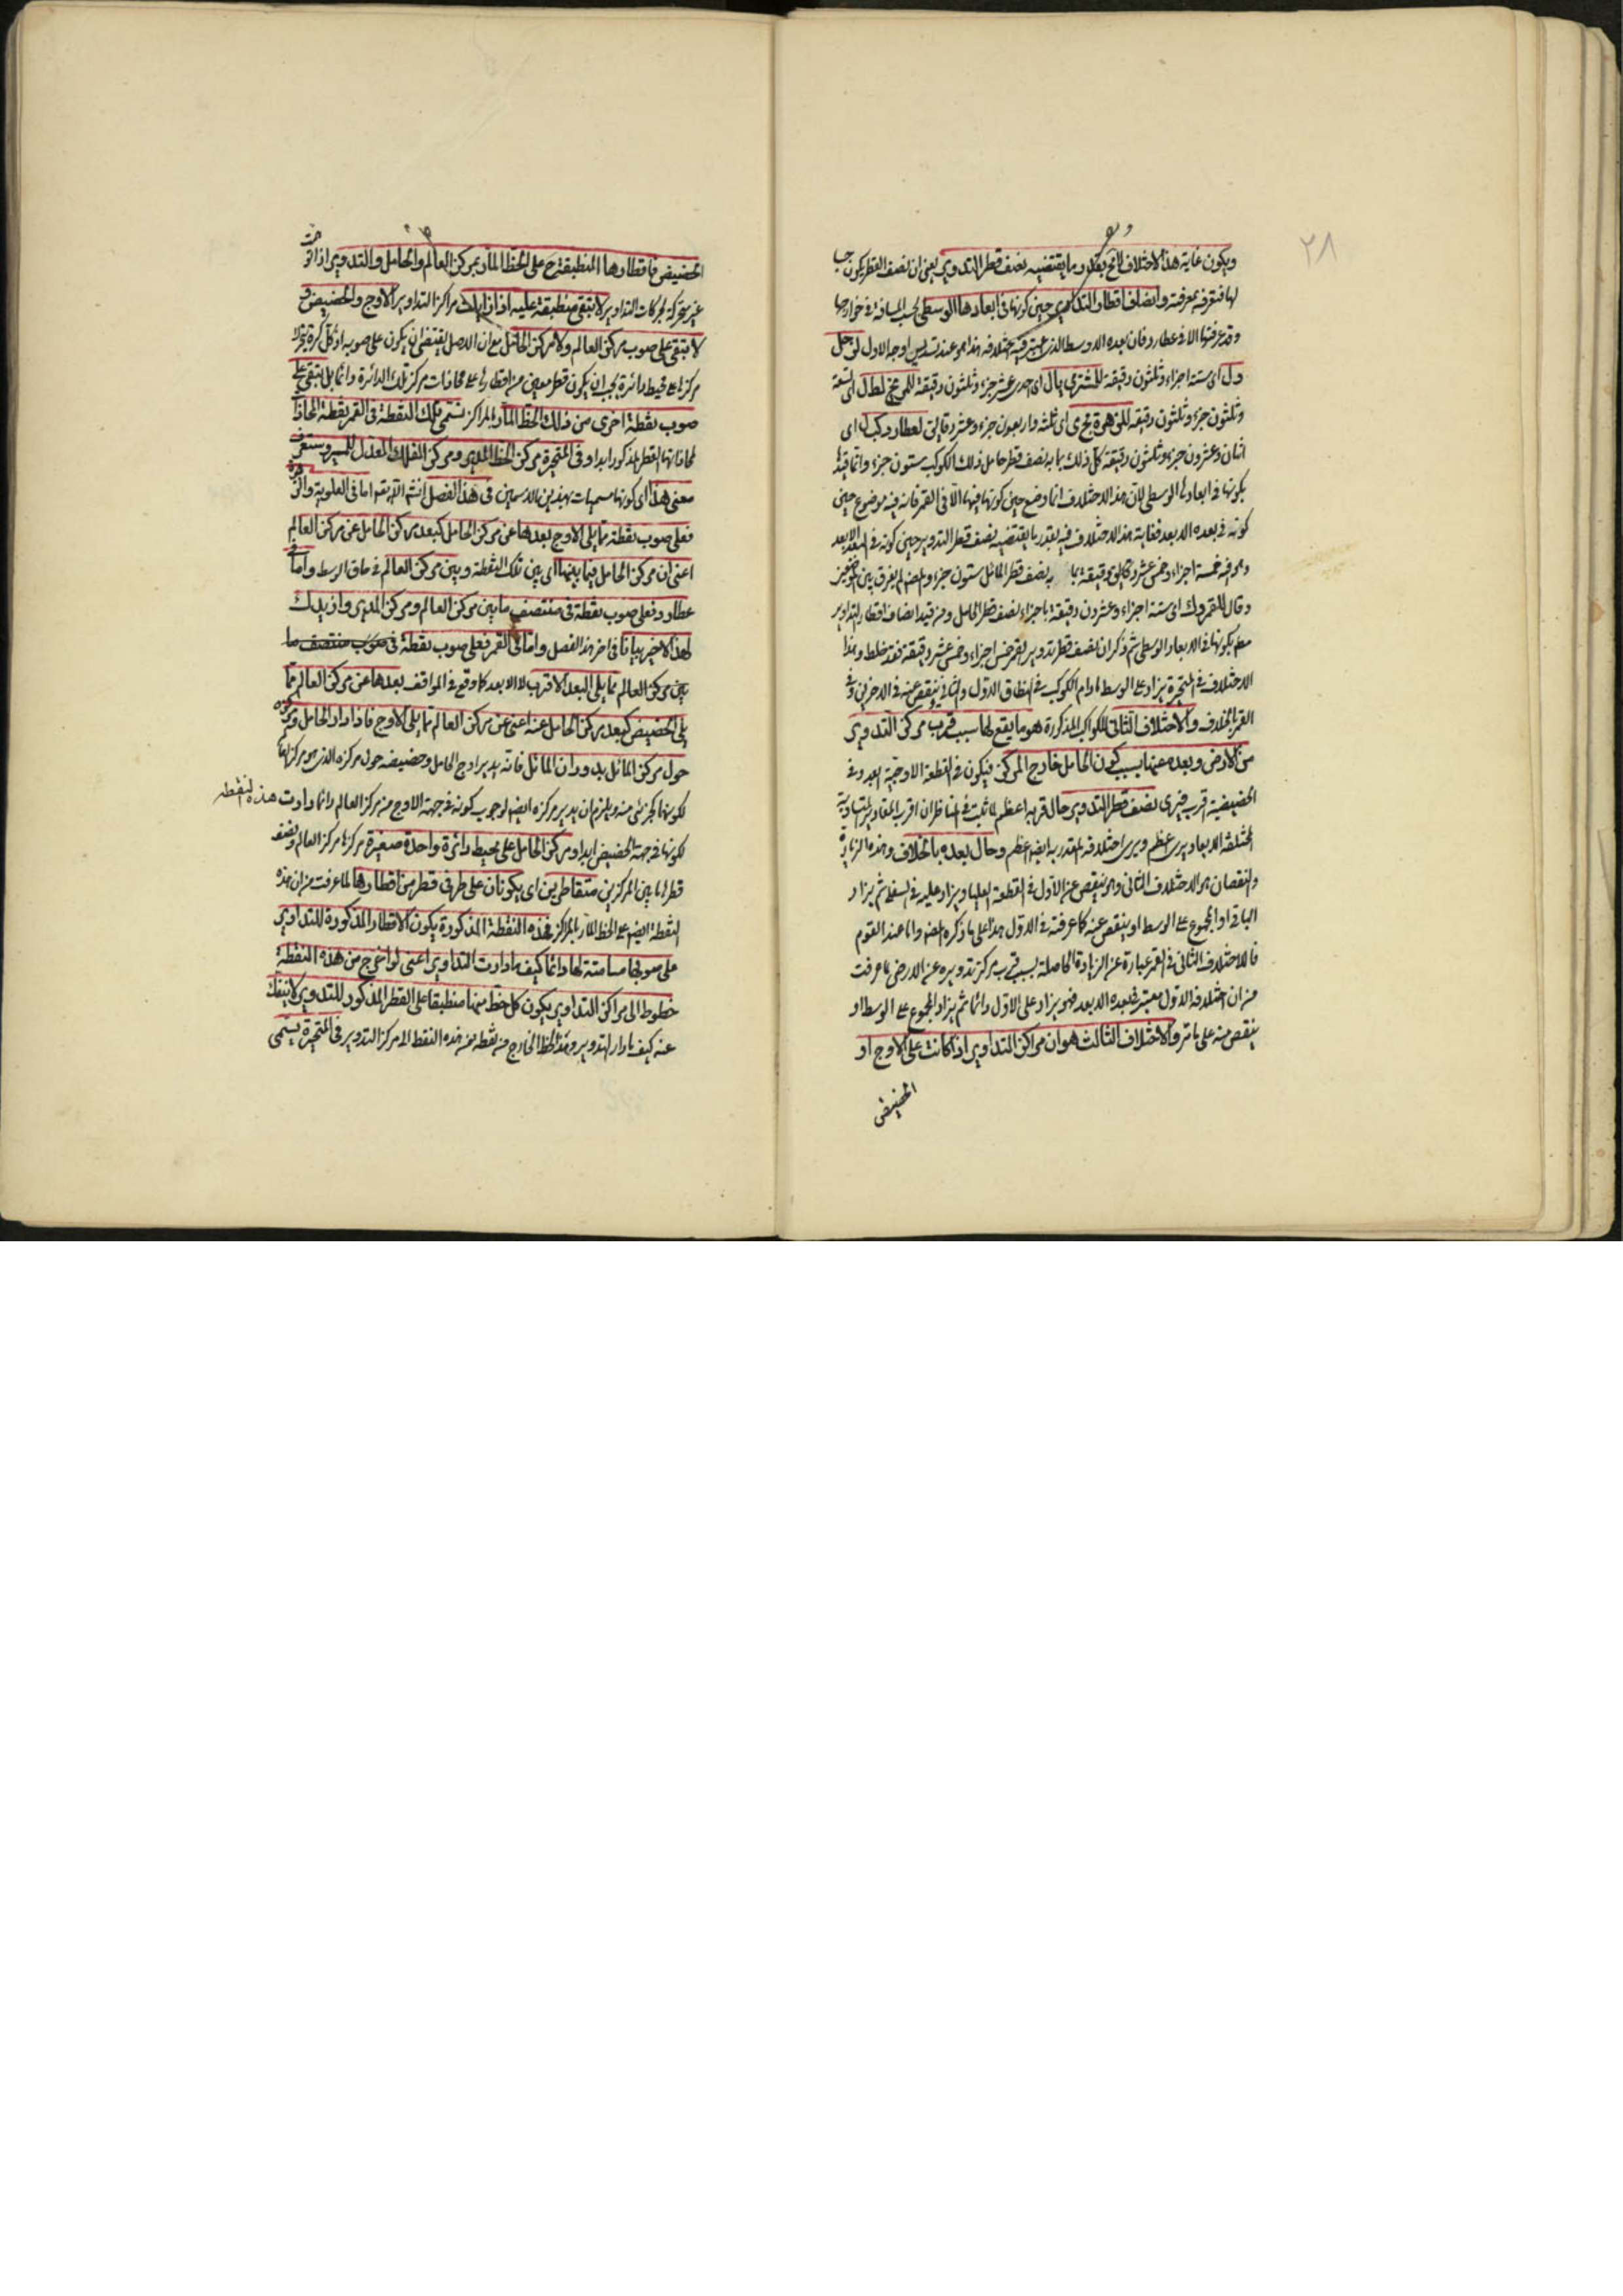 ٢٨
ويكون غاية هذا الاختلاف بقدر ما يقتضيه نصف قطر التدوير يعنى ان نصف القطر يكون
لها فتعرفه بمعرفته وانصاف اقطار التداوير حين كونها فى ابعادها الوسطى بحسب المسافة فى خوارجها
وقد عرفتها الا فى عطارد فان بعده الاوسط الذى اختلافه هذا هو عند تسديس اوجه الاول لزحل
ول اى ستة اجزاء وثلثون دقيقة للمشترى يا ل اى احد عشر جزء وثلثون دقيقة للمريخ لط ل اى تسعة
وثلثون جزء وثلثون دقيقة للزهرة مج ى اى ثلثة واربعون جزء وعشر دقايق لعطارد كب ل اى
اثنان وعشرون جزء وثلثون دقيقة كل ذلك بما به نصف قطر حامل ذلك الكوكب ستون جزء وانما قيد
بكونها فى ابعادها الوسطى لان هذا الاختلاف انما وضع حين كونها فيها الا فى القمر فانه فيه موضوع حين
كونه فى بعده الابعد فغاية هذا الاختلاف فيه بقدر ما يقتضيه نصف قطر التدوير حين كونه فى البعد الابعد
وهو فيه خمسة اجزاء وخمس عشر دقيقة بما به نصف قطر المائل ستون جزء والمص لم يفرق بين
وقال للقمر وك اى ستة اجزاء وعشرون دقيقة باجزاء نصف قطر الحامل ومن قيد انصاف اقطار التداوير
معه بكونها فى الابعاد الوسطى ثم ذكر ان نصف قطر تدوير القمر خمس اجزاء وخمس عشر دقيقة فقد خلط وهذا
الاختلاف فى المتحيرة يزاد على الوسط ما دام الكوكب فى النطاق الاول والثانى وينقص عنه فى الاخرين وفى
القمر بالخلاف والاختلاف الثانى للكواكب المذكورة هو ما يقع لها بسبب قرب مركز التدوير
من الارض وبعده عنها بسبب كون الحامل خارج المركز فيكون فى القطعة الاوجية ابعد وفى
الحضيضية اقرب فيرى نصف قطر التدوير حال قربه اعظم لما ثبت فى المناظر ان اقرب المقادير المتساوية
المختلفة الابعاد يرى اعظم ويرى اختلافه المقدر به ايضا اعظم وحال بعده بالخلاف وهذه الزيادة
والنقصان هو الاختلاف الثانى وهو ينقص عن الاول فى القطعة العليا ويزاد عليه فى السفلى ثم يزاد
الباقى او المجموع على الوسط او ينقص عنه كما عرفته فى الاول هذا على ما ذكره المص واما عند القوم
فالاختلاف الثانى فى القمر عبارة عن الزيادة الحاصلة بسبب قرب مركز تدويره عن الارض لما عرفت
من ان اختلافه الاول معتبر فى بعده الابعد فهو يزاد على الاول دائما ثم يزاد المجموع على الوسط او
ينقص منه على ما مر والاختلاف الثالث هو ان مراكز التداوير اذا كانت على الاوج او
الحضيض
الحضيض فاقطارها المنطبقة ح على الخط المار بمركز العالم والحامل والتداوير اذا
غير متحركة بحركات التداوير لا تبقى منطبقة عليه اذا زايلت مراكز التداوير الاوج والحضيض و
لا تبقى على صوب مركز العالم ولا مركز الحامل مع ان الاصل يقتضى ان يكون على صوبه اذ كل كرة تتحرك
مركزها على محيط دائرة يجب ان يكون قطر معين من اقطارها على محاذات مركز تلك الدائرة دائما بل تبقى على
صوب نقطة اخرى من ذلك الخط المار بالمراكز تسمى تلك النقطة فى القمر نقطة المحاذاة
لمحاذاتها القطر المذكور ابدا وفى المتحيرة مركز الخط المدير ومركز الفلك المعدل للمسير وستعرف
معنى هذا اى كونها مسميات بهذين الاسمين فى هذا الفصل انشاء الله تعالى اما فى العلوية والزهرة
فعلى صوب نقطة مما يلى الاوج بعدها عن مركز الحامل كبعد مركز الحامل عن مركز العالم
اعنى ان مركز الحامل فيما بينهما اى بين تلك النقطة وبين مركز العالم فى حاق الوسط واما فى
عطارد فعلى صوب نقطة فى منتصف ما بين مركز العالم ومركز المدير وازيدك
لهذا الاخير بيانا فى اخر هذا الفصل واما فى القمر فعلى صوب نقطة فى صوب منتصف ما
بين مركز العالم مما يلى البعد الاقرب لا الابعد كما وقع فى المواقف بعدها عن مركز العالم مما
يلى الحضيض كبعد مركز الحامل عنه اعنى عن مركز العالم مما يلى الاوج فاذا دار الحامل ومركزه
حول مركز المائل بدوران المائل فانه يدير اوج الحامل وحضيضه حول مركزه الذى هو مركزها
لكونها كجزئى منه ويلزم ان يدير مركزه ايضا لوجوب كونه فى جهة الاوج من مركز العالم دائما دارت هذه النقطه
لكونها فى جهة الحضيض ابدا ومركز الحامل على محيط دائرة واحدة صغيرة مركزها مركز العالم ونصف
قطرها ما بين المركزين متقاطرين اى يكونان على طرفى قطر من اقطارها لما عرفت من ان هذه
النقطة ايضا على الخط المار بالمراكز فهذه النقطة المذكورة يكون الاقطار المذكورة للتداوير
على صوبها مسامتة لها دائما كيف ما دارت التداوير اعنى لو اخرج من هذه النقطة
خطوط الى مراكز التداوير يكون كل خط منها منطبقا على القطر المذكور للتدوير لا ينفك
عنه كيف ما دار التدوير وهذا الخط الخارج من نقطة من هذه النقط الى مركز التدوير فى المتحيرة يسمى